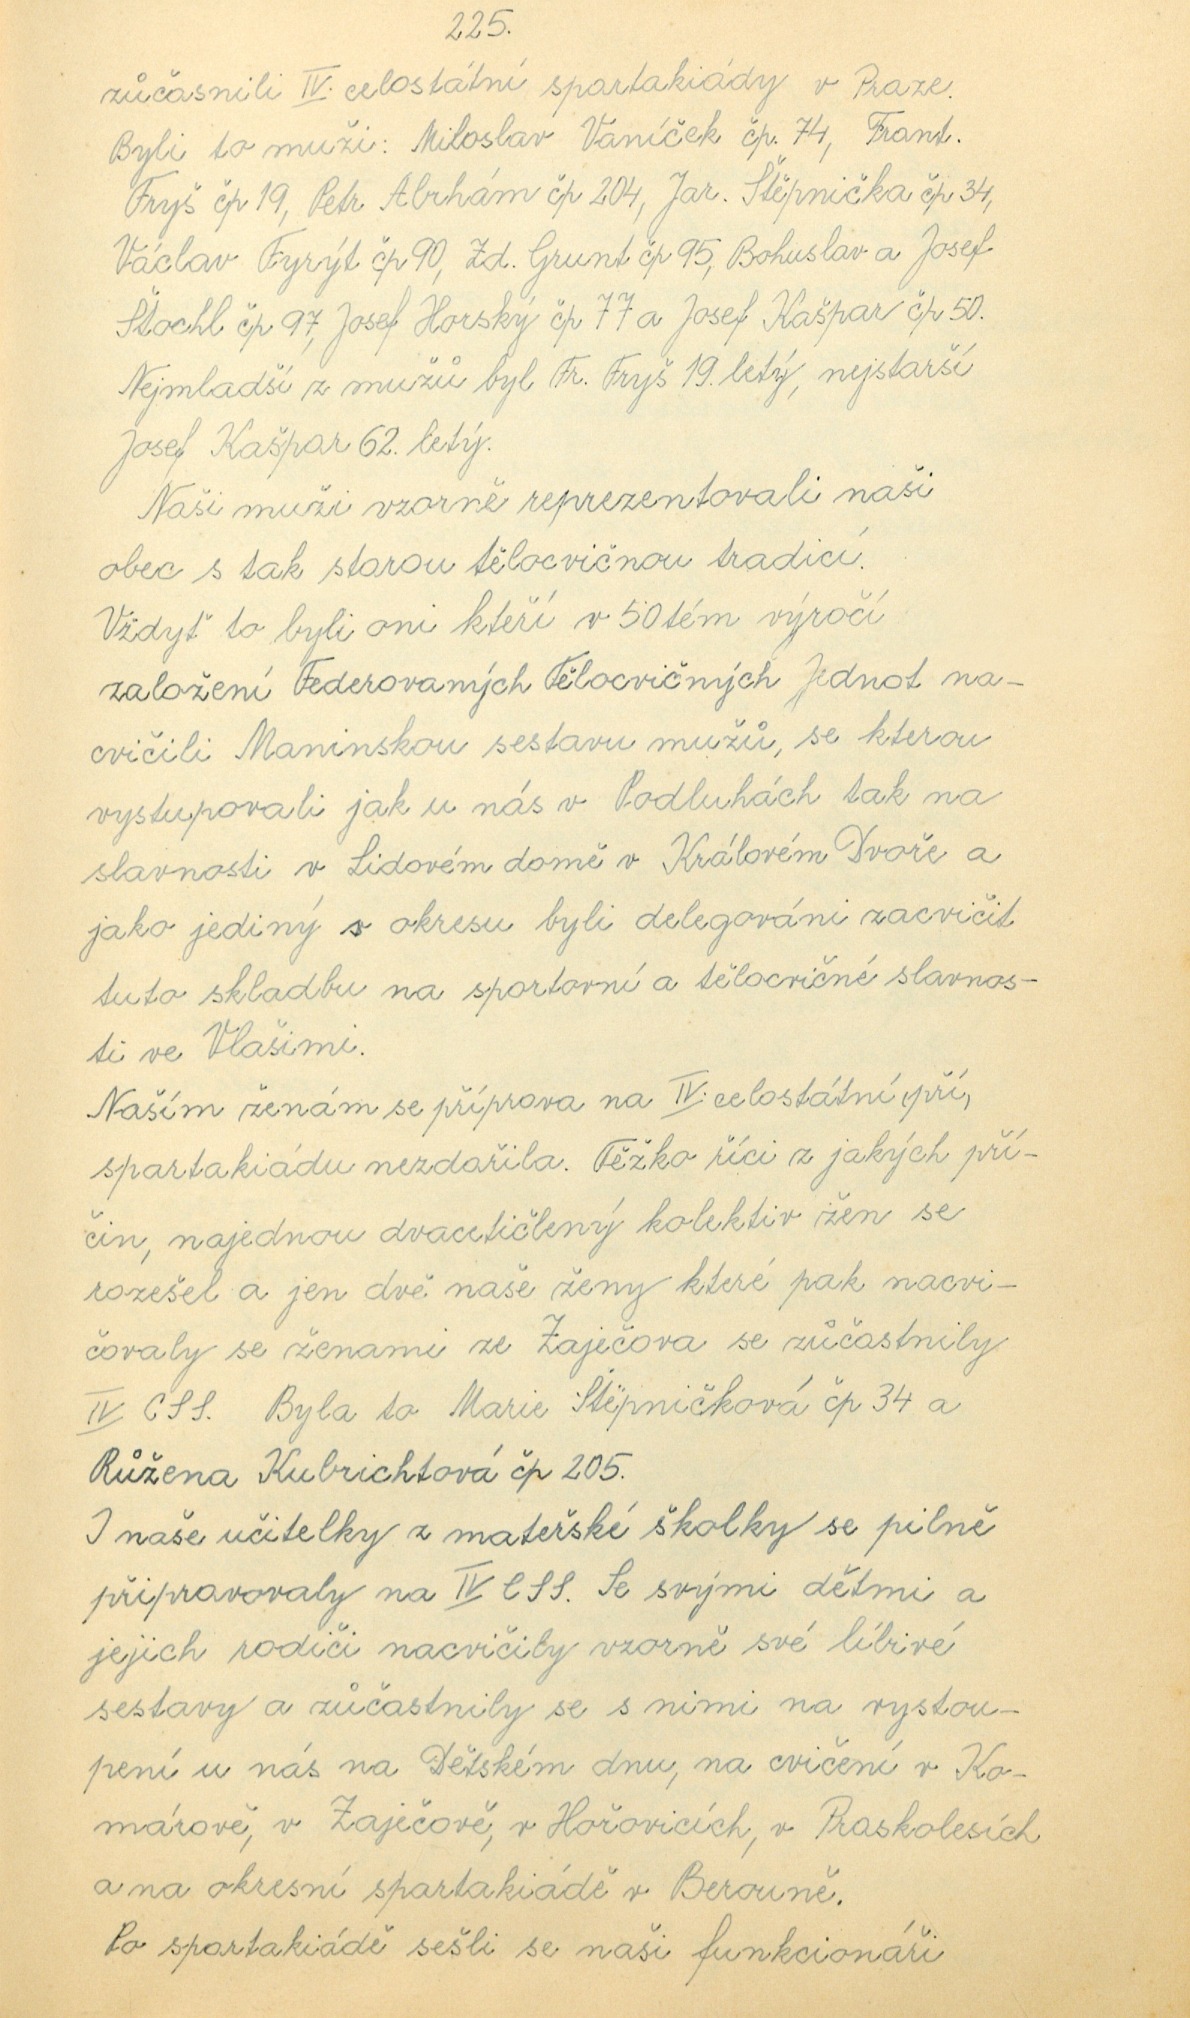 225.
zůčasnili IV. celostátní spartakiády v Praze.
Byli to muži: Miloslav Vaníček čp. 74, Frant.
Fryš čp 19, Petr Abrhám čp 204, Jar. Štěpnička čp 34,
Václav Fyrýt čp 90, Zd. Grunt čp 95, Bohuslav a Josef
Štochl čp 97, Josef Horský čp 77 a Josef Kašpar čp 50.
Nejmladší z mužů byl Fr. Fryš 19. letý, nejstarší
Josef Kašpar 62. letý.
Naši muži vzorně reprezentovali naši
obec s tak starou tělocvičnou tradicí.
Vždyť to byli oni kteří v 50tém výročí
založení Federovaných Tělocvičných Jednot na-
cvičili Maninskou sestavu mužů, se kterou
vystupovali jak u nás v Podluhách tak na
slavnosti v Lidovém domě v Královém Dvoře a
jako jediný s okresu byli delegováni zacvičit
tuto skladbu na sportovní a tělocvičné slavnos-
ti ve Vlašimi.
Naším ženám se příprava na IV. celostátní „pří„
spartakiádu nezdařila. Těžko říci z jakých pří-
čin, najednou dvacetičlený kolektiv žen se
rozešel a jen dvě naše ženy které pak nacvi-
čovaly se ženami ze Zaječova se zůčastnily
IV CSS. Byla to Marie Štěpničková čp 34 a
Růžena Kubrichtová čp 205.
I naše učitelky z mateřské školky se pilně
připravovaly na IV CSS. Se svými dětmi a
jejich rodiči nacvičily vzorně své líbivé
sestavy a zůčastnily se s nimi na vystou-
pení u nás na Dětském dnu, na cvičení v Ko-
márově, v Zaječově, v Hořovicích, v Praskolesích
a na okresní spartakiádě v Berouně.
Po spartakiádě sešli se naši funkcionáři